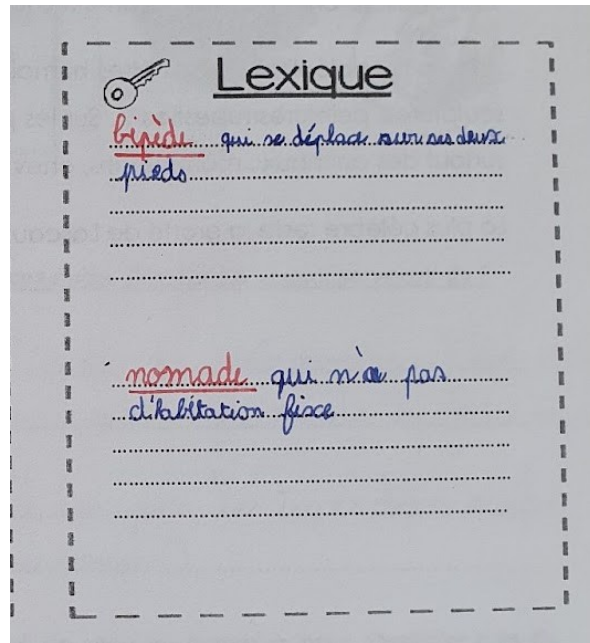 Lexique
bipède qui se déplace sur ses deux
pieds.
nomade qui n'a pas
d'habitation fixe